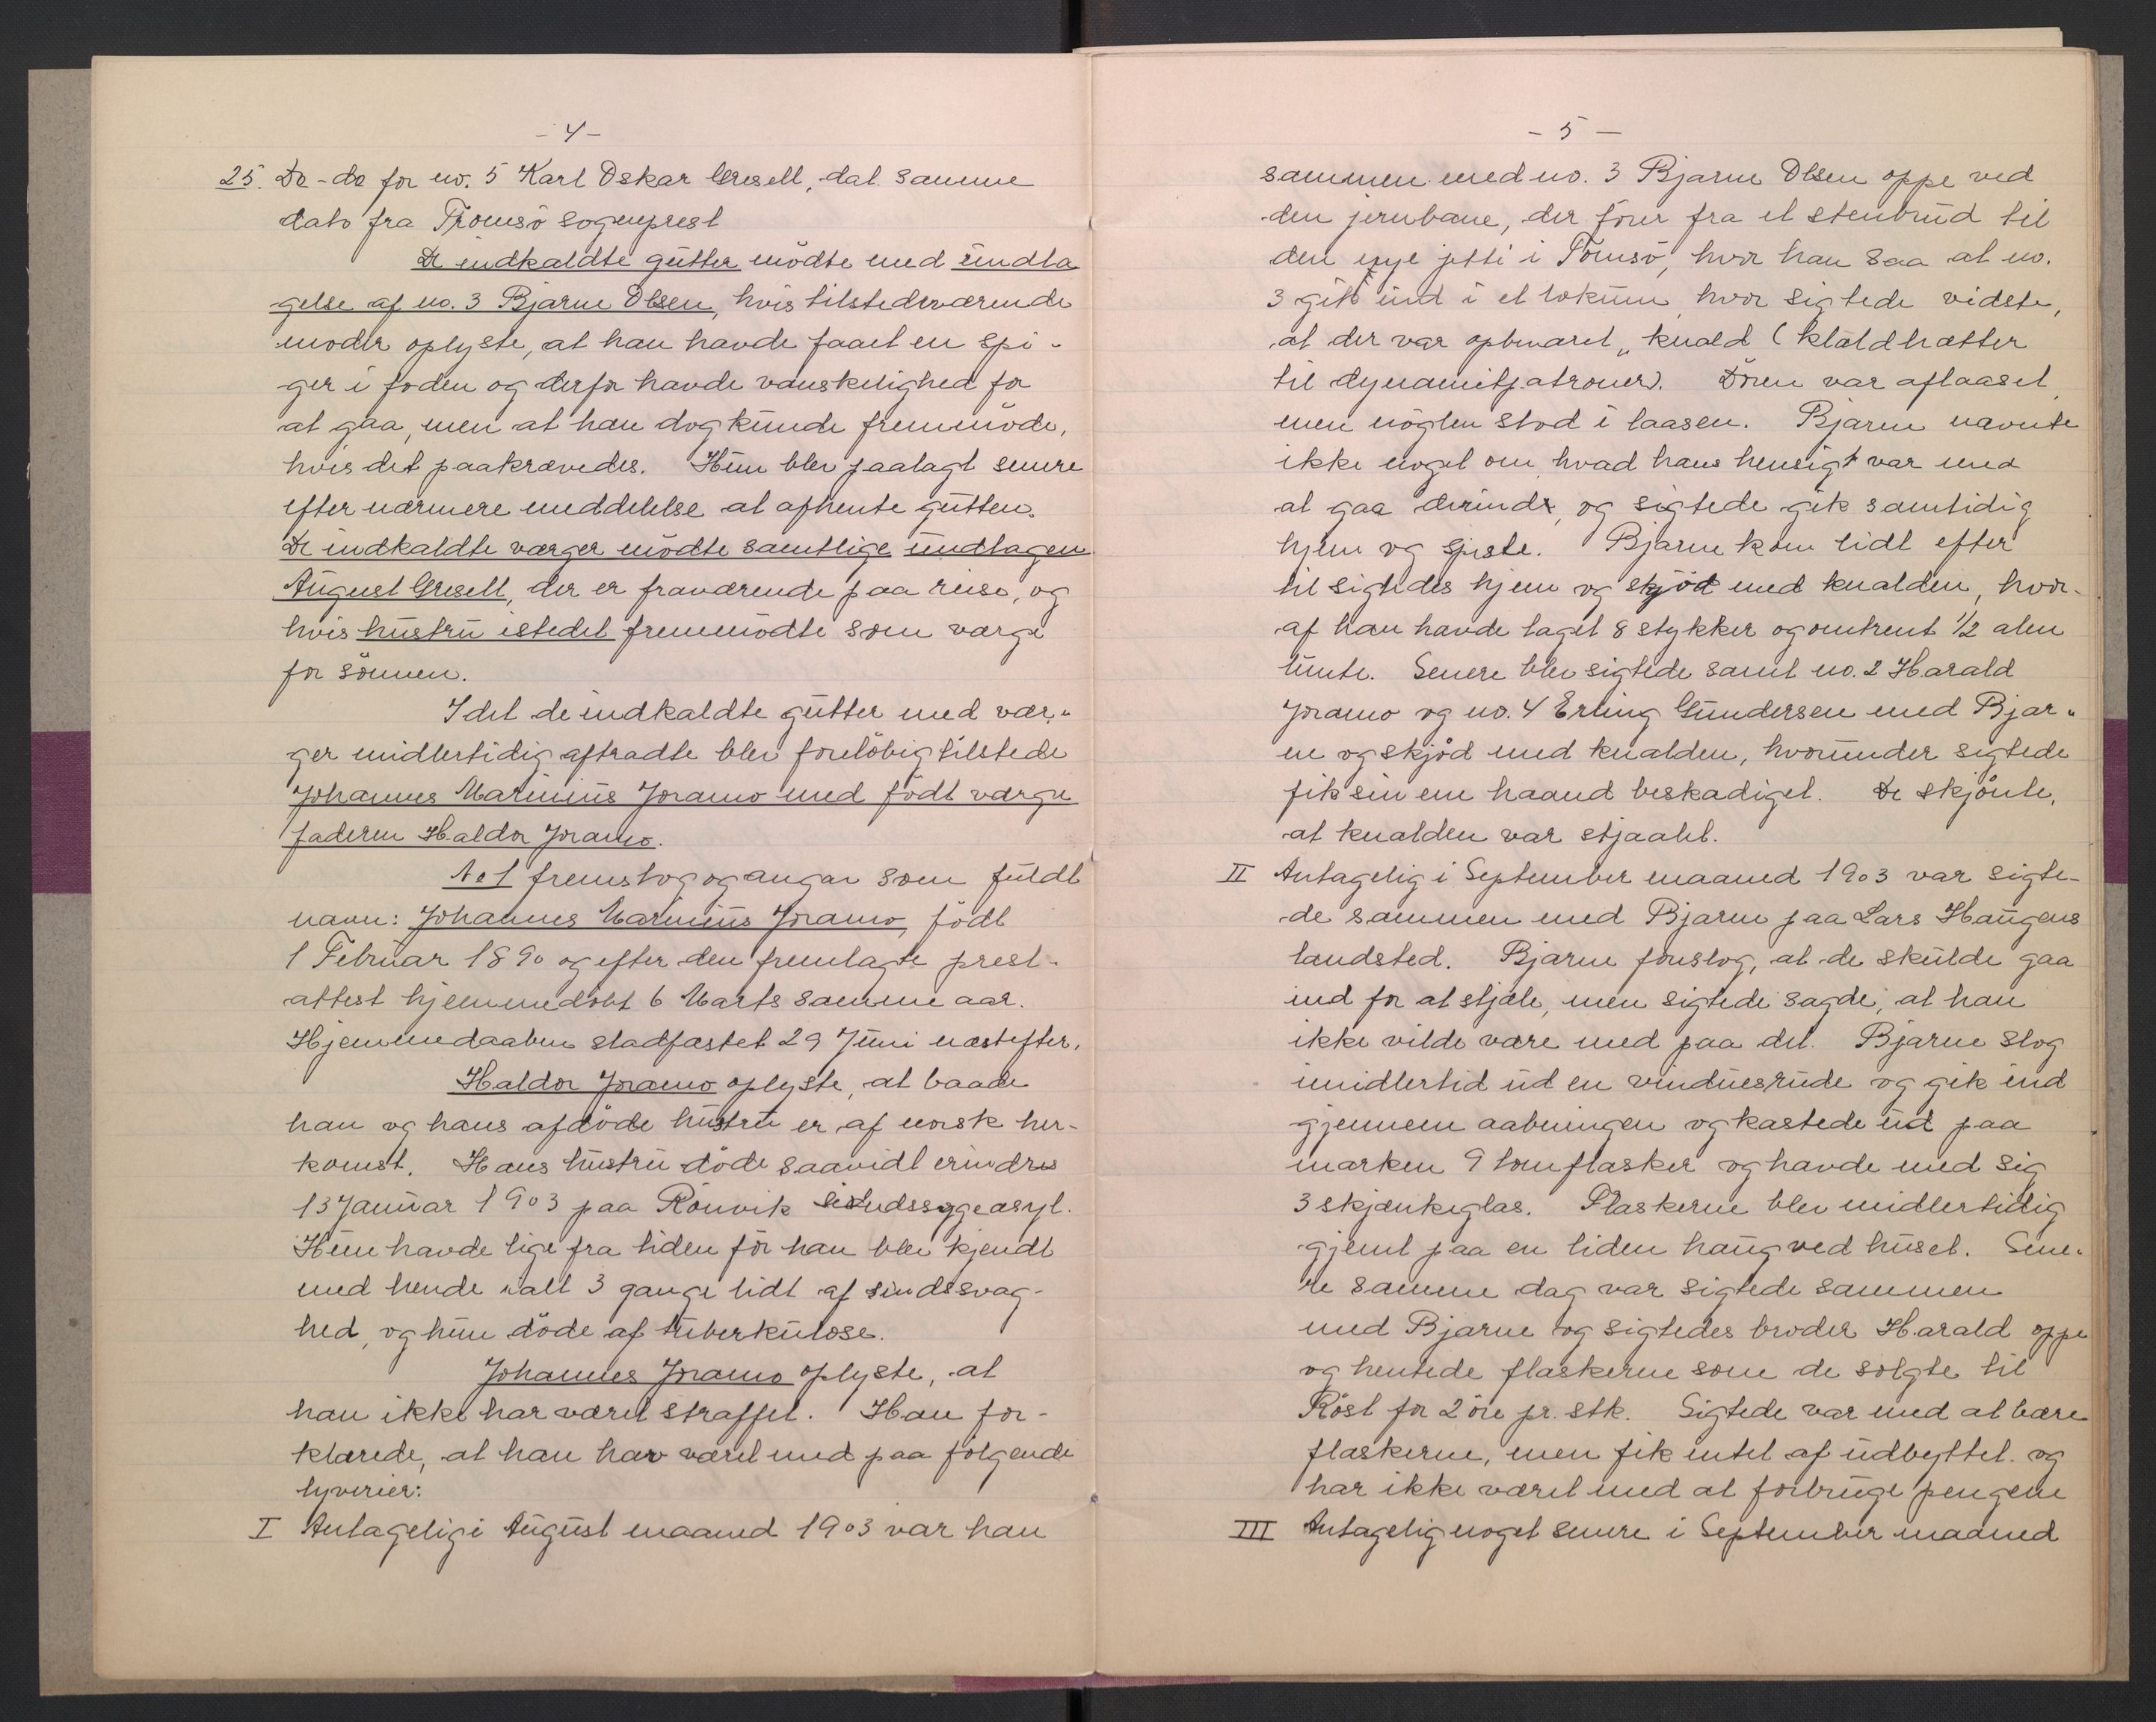 - 4 -
25. Do - do for no. 5 Karl Oskar Gresell, dat. samme
dato fra Tromsö sogneprest
De indkaldte gutter mödte med undta
gelse af no. 3 Bjarne Olsen, hvis tilstedeværende
moder oplyste, at han havde faaet en spi-
ger i foden og derfor havde vanskelighed for
at gaa, men at han dog kunde fremmöde,
hvis det paakrævedes. Hun blev paalagt senere
efter nærmere meddelelse at afhente gutten.
De indkaldte værger mödte samtlige undtagen
August Gresell, der er fraværende paa reise, og
hvis hustru istedet fremmödte som værge
for sönnen.
Idet de indkaldte gutter med vær-
ger midlertidig aftraadte blev forelöbig tilstede
Johannes Marinius Joramo med födt værge
faderen Haldor Joramo.
No 1 fremstog og angav som fuldt
navn: Johannes Marinius Joramo, födt
1 Februar 1890 og efter den fremlagte prest-
attest hjemmedöbt 6 Marts samme aar.
Hjemmedaaben stadfæstet 29 Juni næstefter.
Haldor Joramo oplyste, at baade
han og hans afdöde hustru er af norsk her-
komst. Hans hustru döde saavidt erindres
13 Januar 1903 paa Rönvik sindssygeasyl.
Hun havde lige fra tiden för han blev kjendt
med hende ialt 3 gange lidt af sindssvag-
hed, og hun döde af tuberkulose.
Johannes Joramo oplyste, at
han ikke har været straffet. Han for-
klarede, at han har været med paa fölgende
tyverier:
I Antagelig i August maaned 1903 var han
- 5 -
sammen med no. 3 Bjarne Olsen oppe ved
den jernbane, der förer fra et stenbrud til
den nye jetti i Tömsö, hvor han saa at no.
3 gik ind i et lokum, hvor sigtede vidste,
at der var opbevaret „knald (knaldhætter
til dynamitpatroner). Dören var aflaaset,
men nöglen stod i laasen. Bjarne nævnte
ikke noget om hvad hans hensigt var med
at gaa derind, og sigtede gik samtidig
hjem og spiste. Bjarne kom lidt efter
til sigtedes hjem og skjöd med knalden, hvor-
af han havde taget 8 stykker og omtrent 1/2 alen
lunte. Senere blev sigtede samt no. 2 Harald
Joramo og no. 4 Erling Gundersen med Bjar-
ne og skjöd med knalden, hvorunder sigtede
fik sin ene haand beskadiget. De skjönte,
at knalden var stjaalet.
II Antagelig i September maaned 1903 var sigte-
de sammen med Bjarne paa Lars Haugens
landsted. Bjarne foreslog, at de skulde gaa
ind for at stjæle, men sigtede sagde, at han
ikke vilde være med paa det. Bjarne slog
imidlertid ud en vinduesrude og gik ind
gjennem aabningen og kastede ud paa
marken 9 tomflasker og havde med sig
3 skjænkeglas. Flaskerne blev midlertidig
gjemt paa en liden haug ved huset. Sene-
re samme dag var sigtede sammen
med Bjarne og sigtedes broder Harald oppe
og hentede flaskerne som de solgte til
Röst for 2 öre pr. stk. Sigtede var med at bære
flaskerne, men fik intet af udbyttet og
har ikke været med at forbruge pengene
III Antagelig noget senere i September maaned